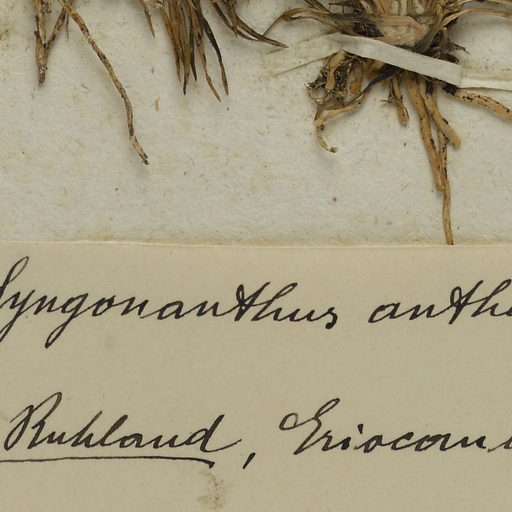 Syngonanthus anthe
Ruhland, Eriocaul